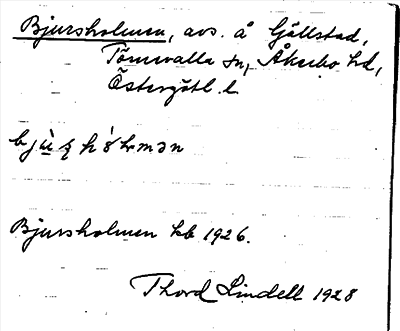 Bjursholmen, avs. å Gällstad,
Törnevalla sn, Åkerbo hd,
Östergötl. l
Bjursholmen kb 1926.
Thord Lindell 1928